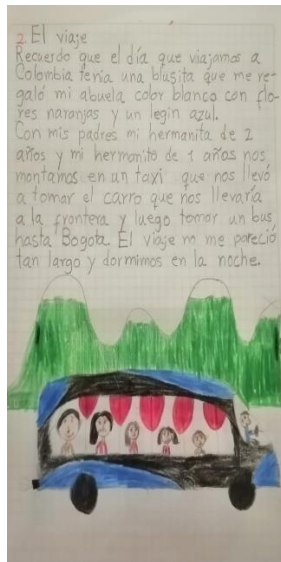 2. El viaje
Recuerdo que el día que viajamos a
Colombia tenía una blusita que me re-
galó mi abuela color blanco con flo-
res naranjas y un legin azul.
Con mis padres mi hermanita de 2
años y mi hermanito de 1 años nos
montamos en un taxi que nos llevó
a tomar el carro que nos llevaría
a la frontera y luego tomar un bus
hasta Bogota. El viaje no me pareció
tan largo y dormimos en la noche.